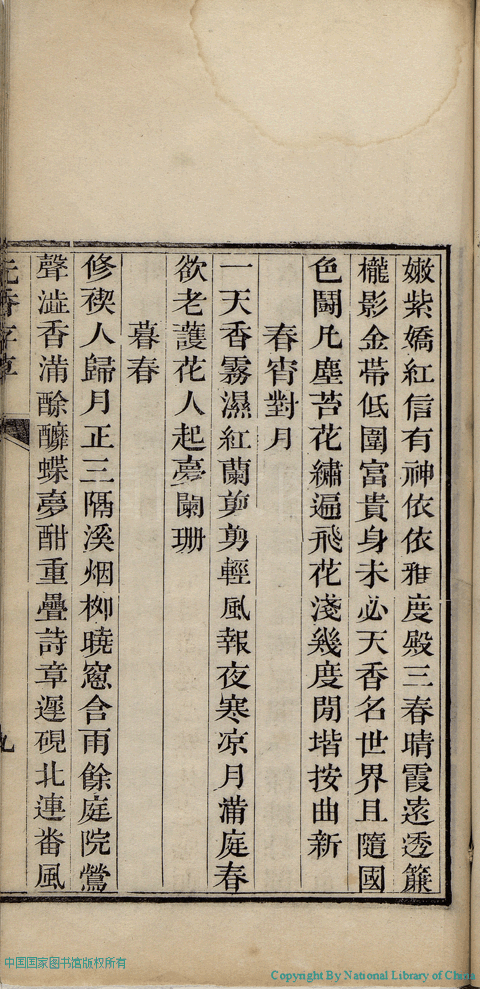 嫩紫嬌紅信有神依依雅度殿三春晴霞遠透簾
櫳影金帶低圍富貴身未必天香名世界且隨國
色鬪凡塵苔花繡遍飛花淺幾度閒堦按曲新
春宵對月
一天香霧濕紅蘭剪剪輕風報夜寒凉月滿庭春
欲老護花人起夢闌珊
暮春
修禊人歸月正三隔溪烟栁曉窻含雨餘庭院鶯
聲澁香滿酴醾蝶夢酣重疊詩章遲硯北連番風
九
中国国家图书馆版权所有
Copyright By National Library of China